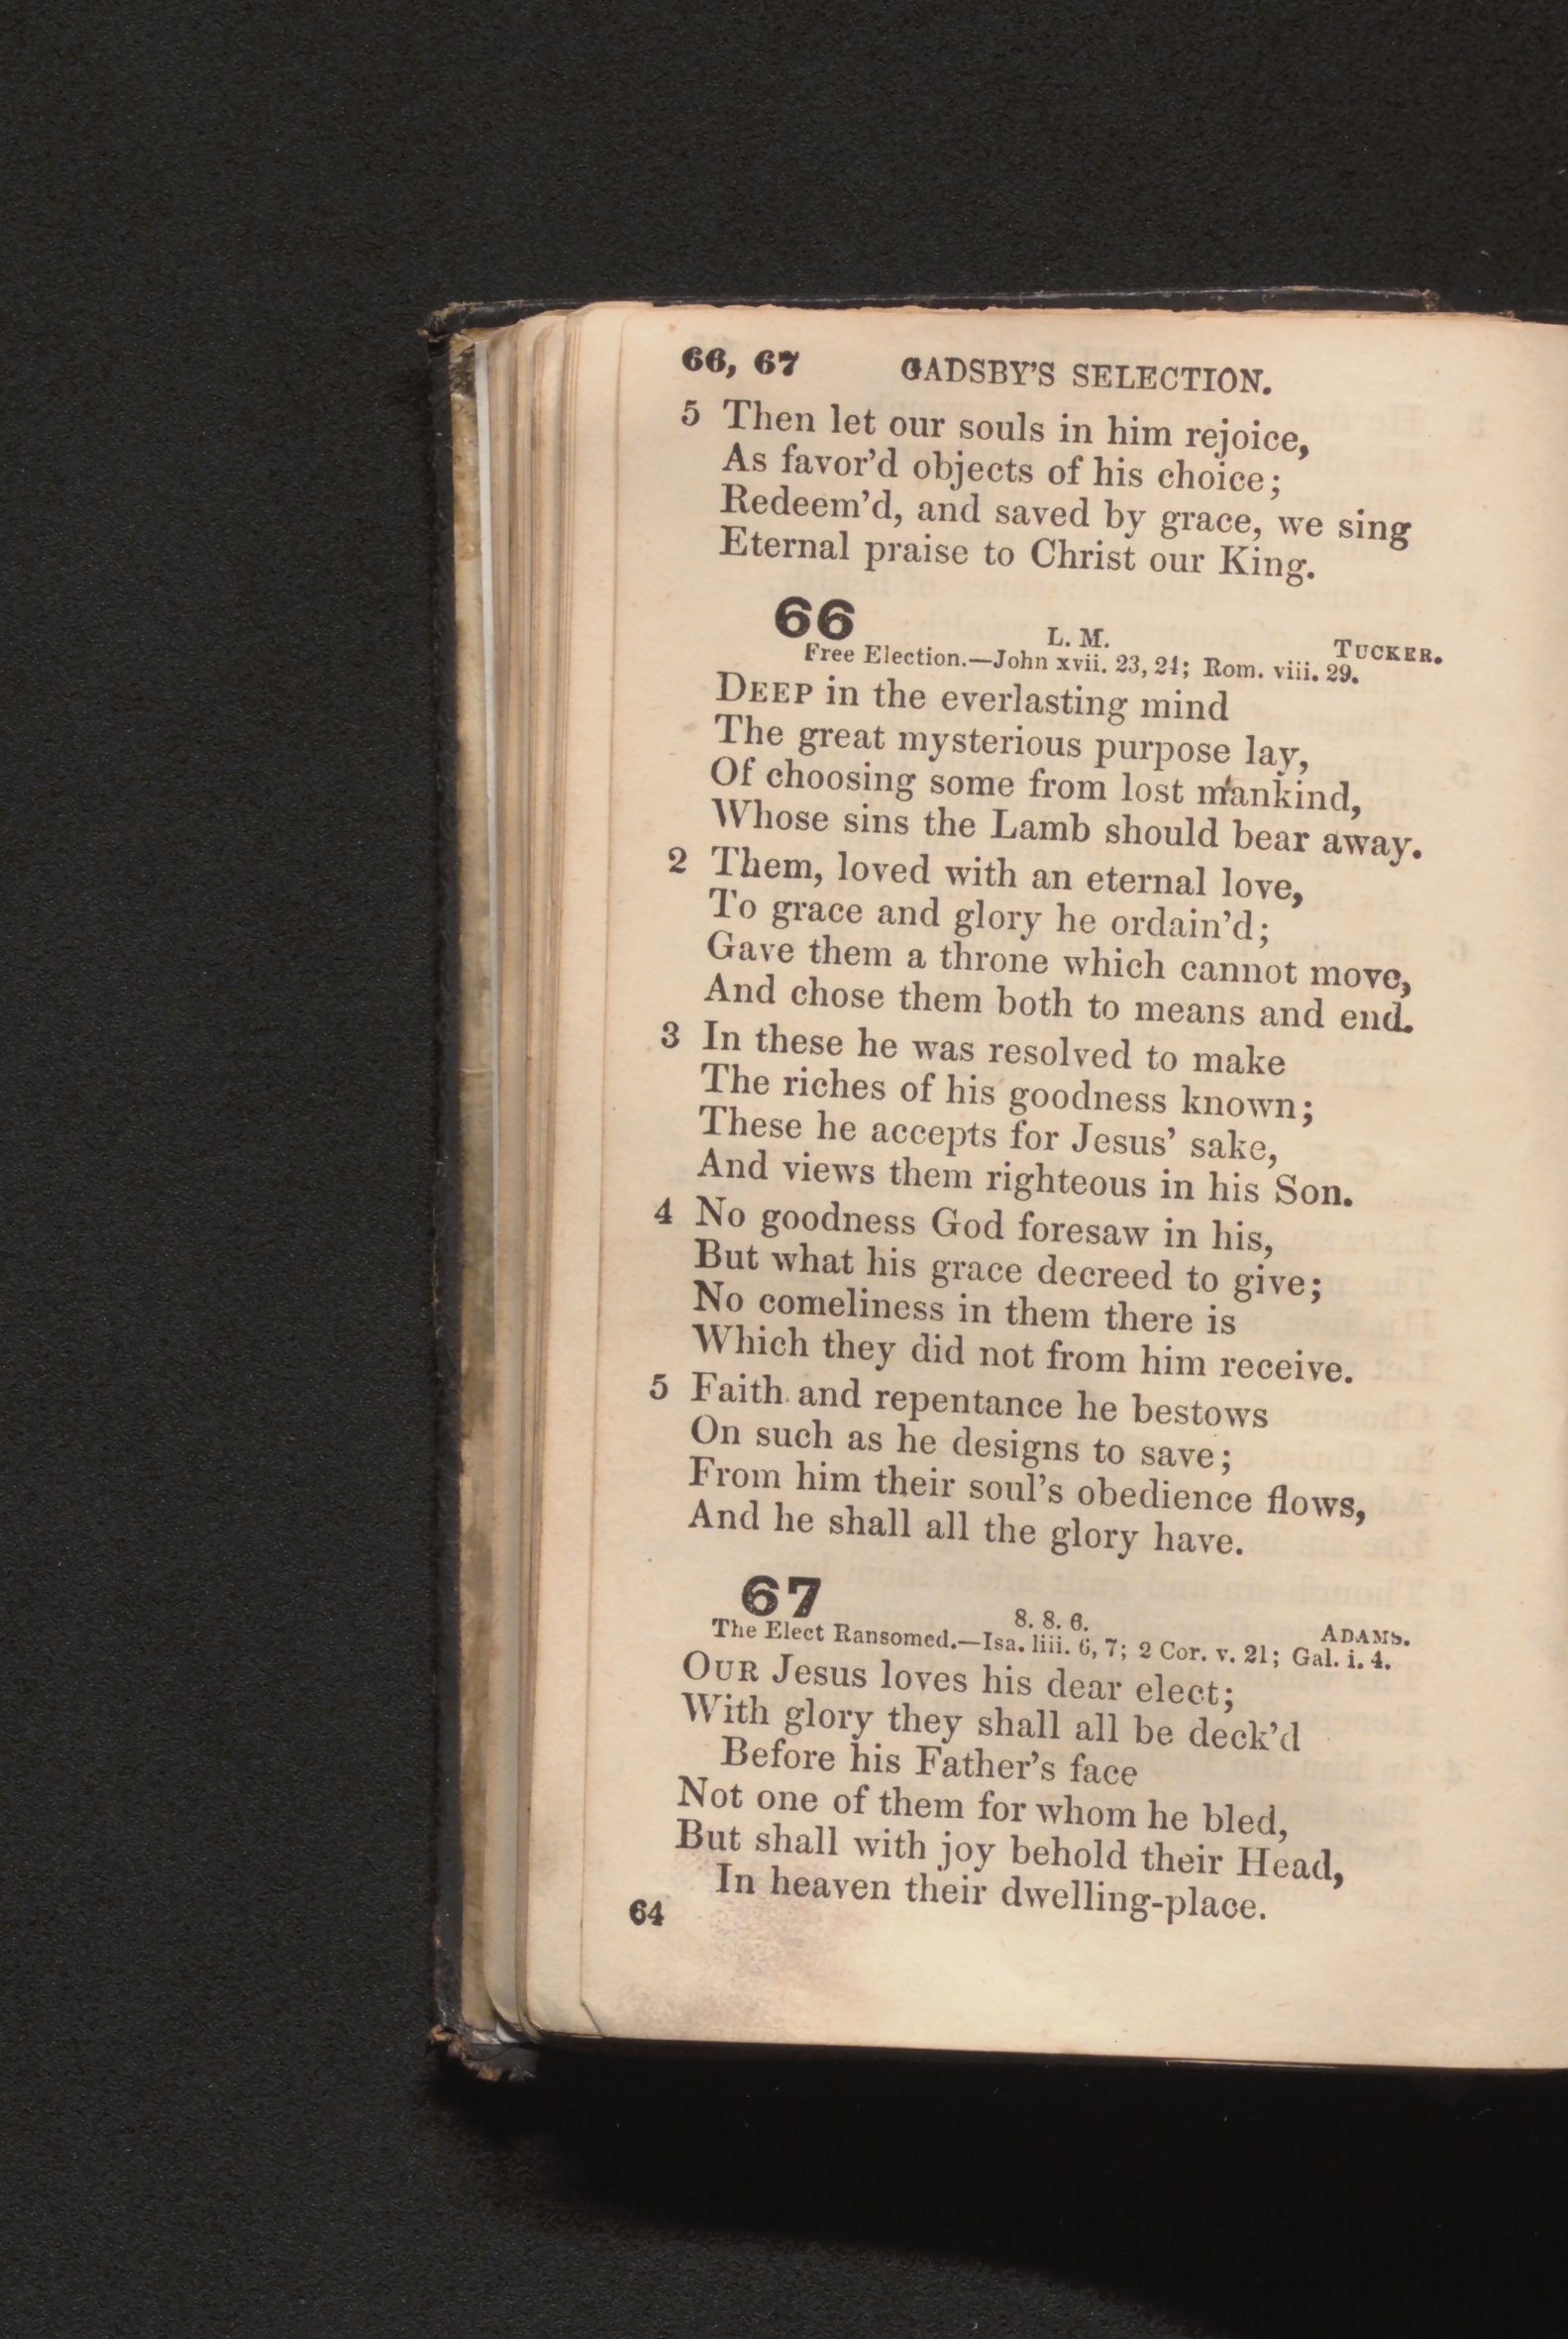 66, 67 GADSBY'S SELECTION.
5 Then let our souls in him rejoice,
As favor'd objects of his choice;
Redeem'd, and saved by grace, we sing
Eternal praise to Christ our King.
66 L. M. TUCKER.
Free Election.—John xvii. 23, 24; Rom. viii. 29.
DEEP in the everlasting mind
The great mysterious purpose lay,
Of choosing some from lost mankind,
Whose sins the Lamb should bear away.
2 Them, loved with an eternal love,
To grace and glory he ordain'd;
Gave them a throne which cannot move,
And chose them both to means and end.
3 In these he was resolved to make
The riches of his goodness known;
These he accepts for Jesus' sake,
And views them righteous in his Son.
4 No goodness God foresaw in his,
But what his grace decreed to give;
No comeliness in them there is
Which they did not from him receive.
5 Faith and repentance he bestows
On such as he designs to save;
From him their soul's obedience flows,
And he shall all the glory have.
67 8. 8. 6. ADAMS.
The Elect Ransomed.—Isa. liii. 6, 7; 2 Cor. v. 21; Gal. i. 4.
OUR Jesus loves his dear elect;
With glory they shall all be deck'd
Before his Father's face
Not one of them for whom he bled,
But shall with joy behold their Head,
In heaven their dwelling-place.
64